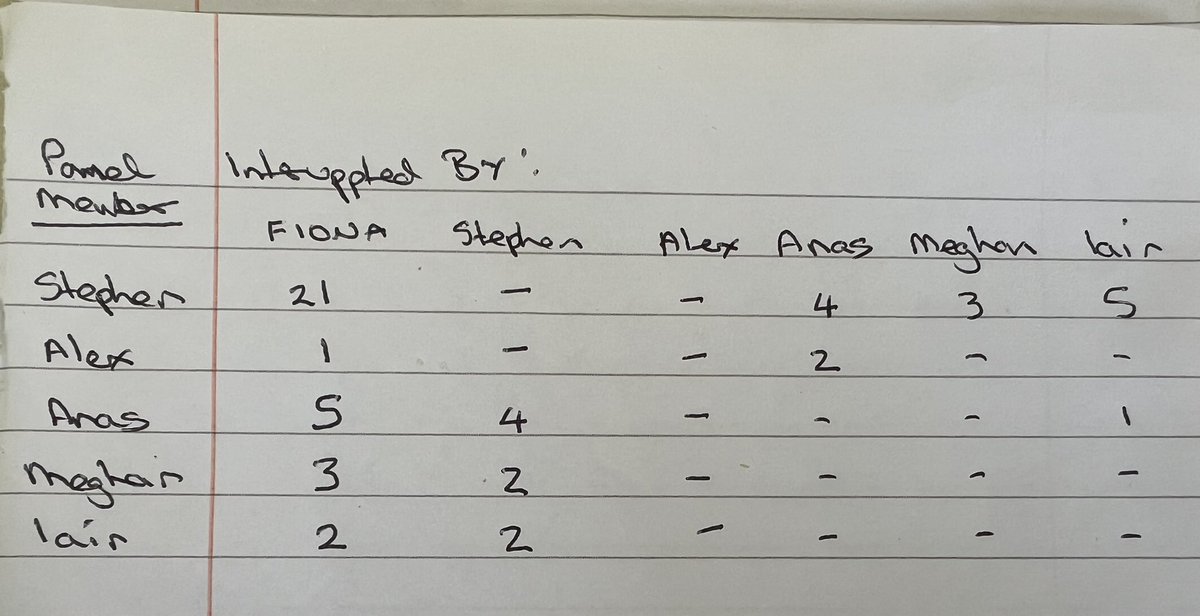 Panel Interuppted By:
Member
FIONA Stephen Alex Anas Meghan Iain
Stephen 21 - - 4 3 5
Alex 1 - - 2 - -
Anas 5 4 - - - 1
Meghain 3 2 - - - -
Iain 2 2 - - - -